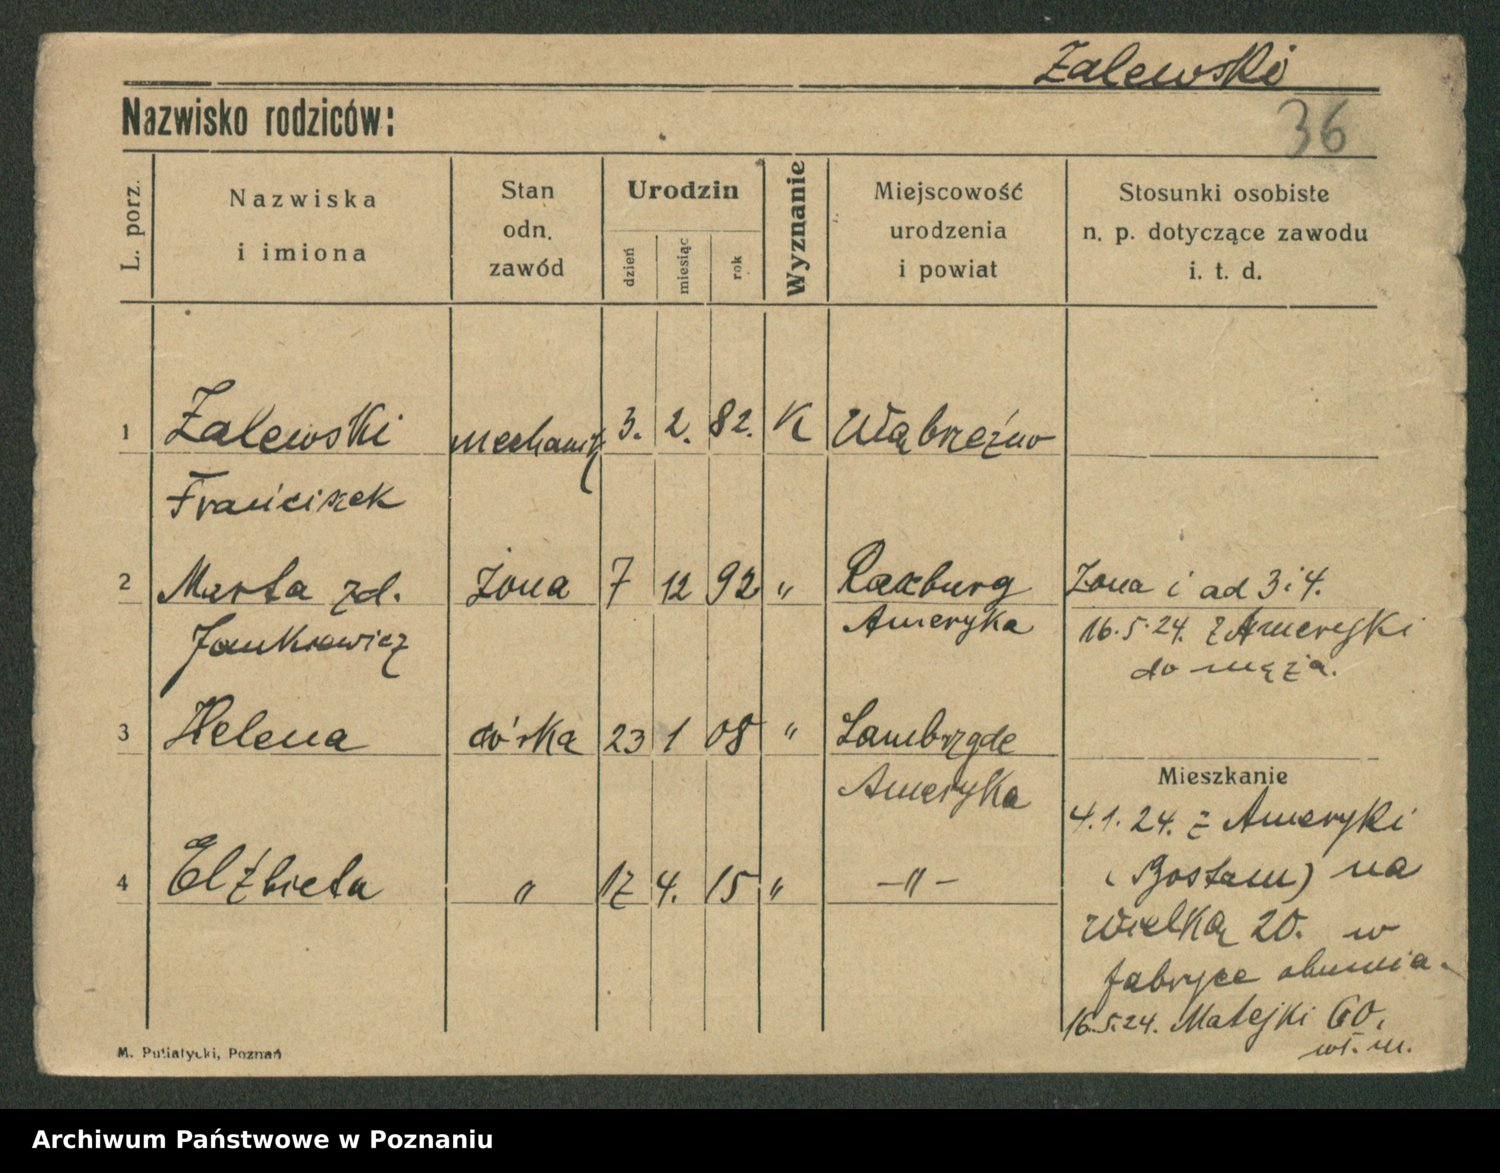 Zalewski
Nazwisko rodziców:
36
L. porz.
Nazwiska
i imiona
Stan
odn.
zawód
Urodzin
dzień
miesiąc
rok
Wyznanie
Miejscowość
urodzenia
i powiat
Stosunki osobiste
n. p. dotyczące zawodu
i. t. d.
1 Zalewski mechanik 3. 2. 82. K Wąbrzeźno
Franciszek
2 Marta zd. żona 7 12 92 " Raxburg Żona i ad 3 i 4.
Jankiewicz Ameryka 16.5.24. z Ameryki
do męża.
3 Helena córka 23 1 08 " Lambrygde
Ameryka
Mieszkanie
4.1.24. z Ameryki
4 Elżbieta " 17 4. 15 " -"-
(Bostam) na
Wielką 20. w
fabryce
16.5.24. Matejki 60.
wł. m.
M. Putiatycki, Poznań
Archiwum Państwowe w Poznaniu